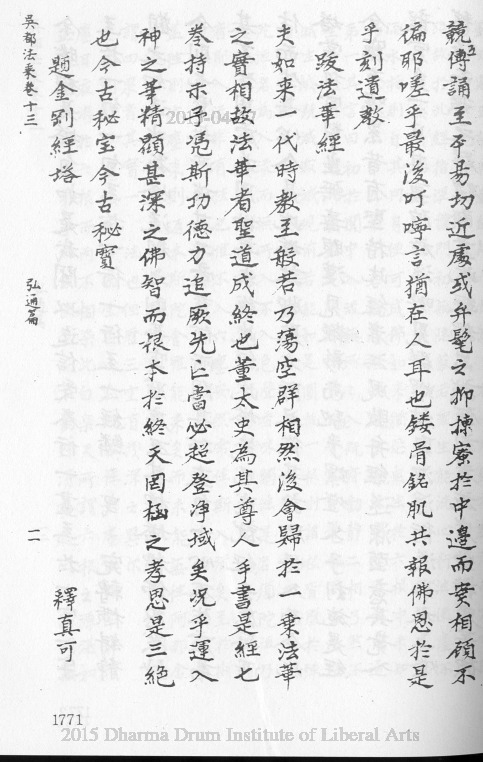 競傳誦至于募切近處或弁髦之抑揀寮於中邊而實相頋不
徧耶嗟乎最後叮嚀言猶在人耳也鏤骨銘肌共報佛恩於是
乎刻道教
跋法華經
夫如来一代時教至般若乃蕩空群相然後會歸於一乗法華
之實相故法華者聖道成終也董太史為其尊人手書是經七
卷持示予憑斯功德力追厥先亡當必超登净域矣況乎運入
神之筆精顯甚深之佛智而根本於終天罔極之孝思是三絶
也今古秘宝今古秘寶
題金剛經塔
釋真可
吳都法乘卷十三
弘通篇
一一
1771
2015 Dharma Drum Institute of Liberal Arts